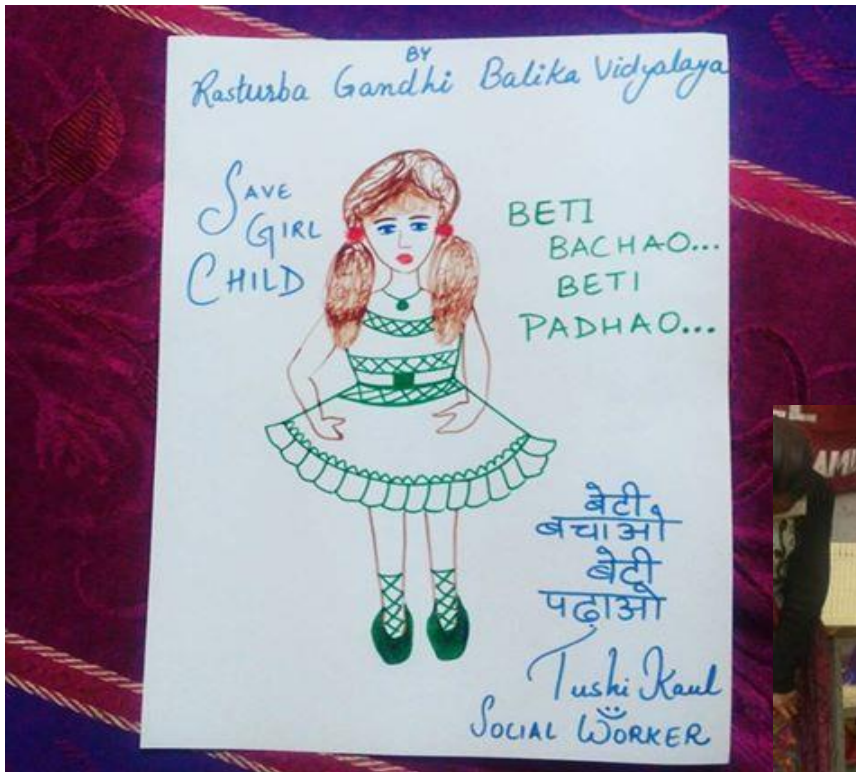 BY
Kasturba Gandhi Balika Vidyalaya
SAVE
GIRL
CHILD
BETI
BACHAO...
BETI
PADHAO...
बेटी
बचाओ
बेटी
पढ़ाओ
Tushi Kaul
SOCIAL WORKER